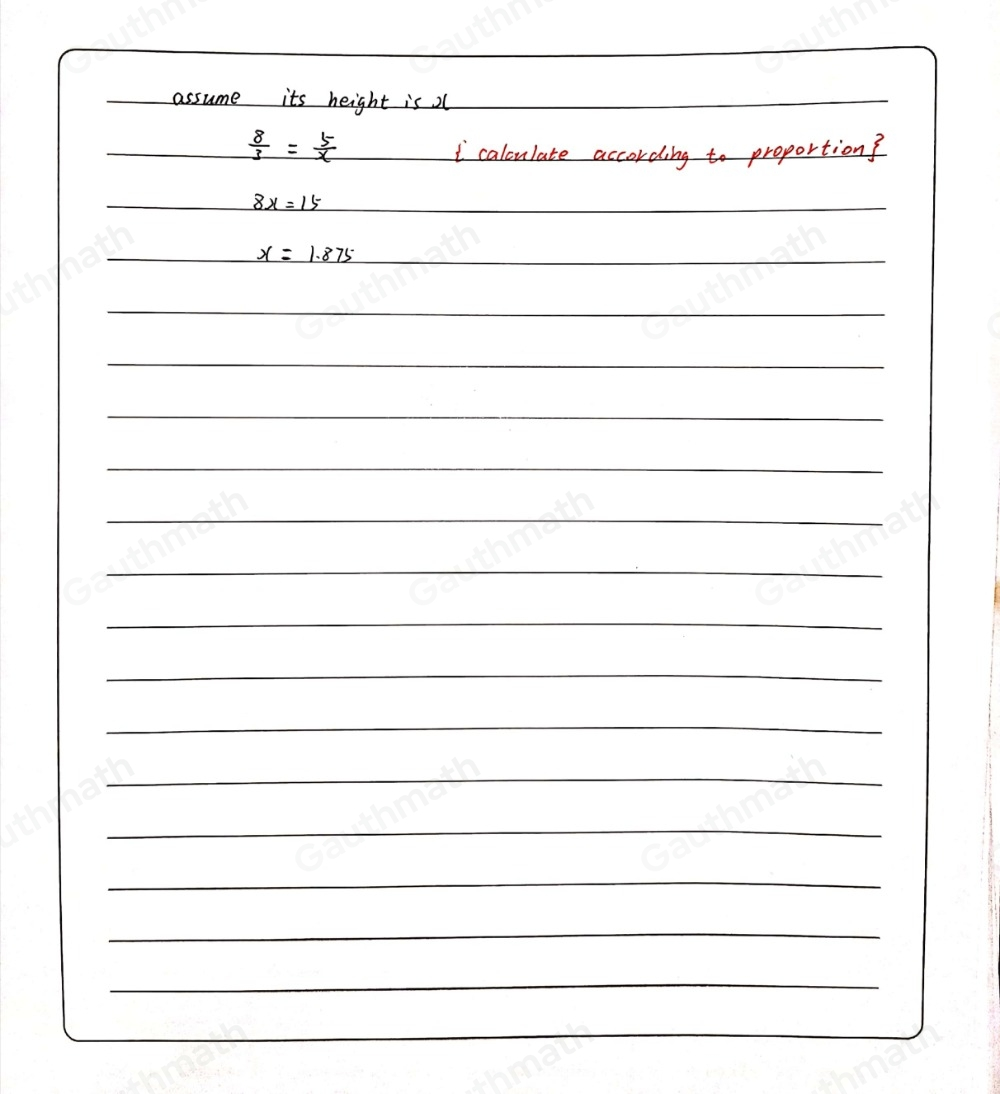 assume its height is x
8/3 = 5/x {calculate according to proportion}
8x = 15
x = 1.875
Gauthmath